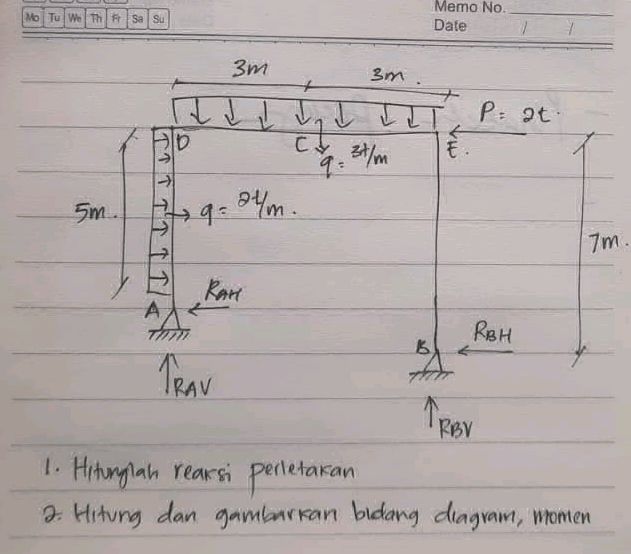 Memo No.
Mo Tu We Th Fr Sa Su
Date / /
3m 3m.
P = 2t.
D C E.
q = 3t/m
5m. q = 2t/m.
7m.
A RAH
B RBH
RAV
RBV
1. Hitunglah reaksi perletakan
2. Hitung dan gambarkan bidang diagram, momen